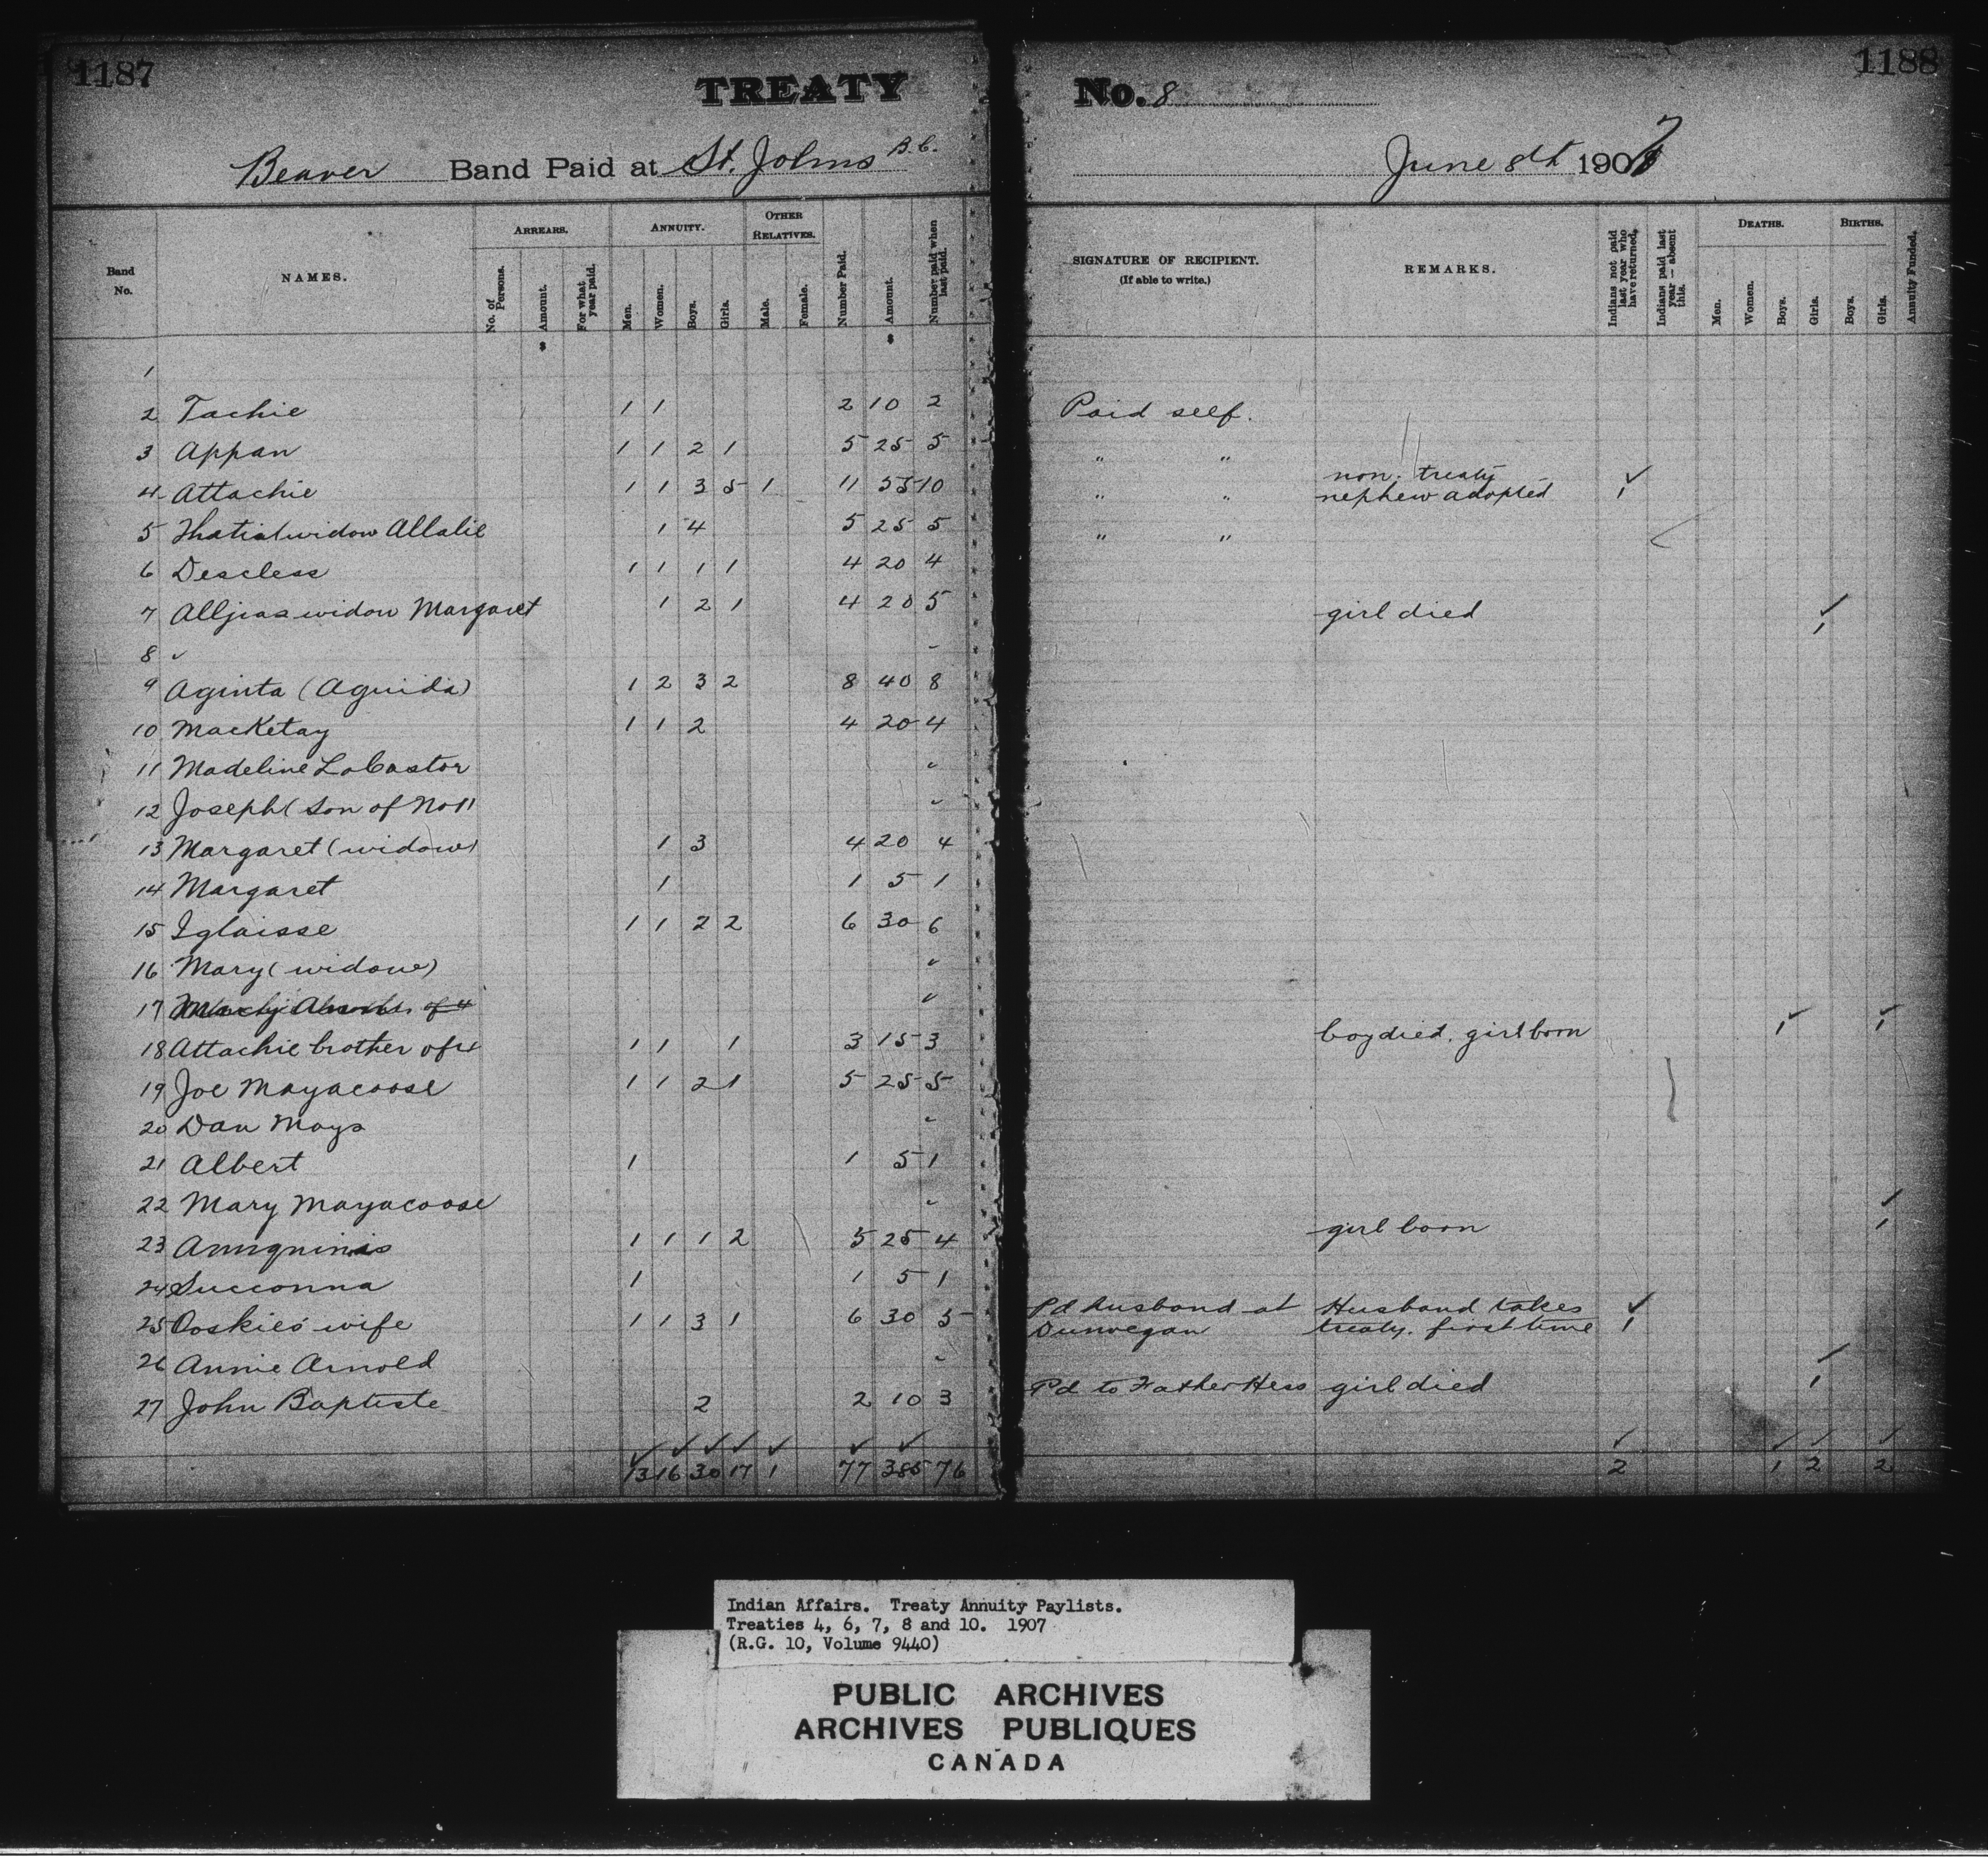 1187
TREATY
Beaver Band Paid at St. Johns B.C.
Band No. NAMES. ARREARS. ANNUITY. OTHER RELATIVES.
No. of Persons. Amount. For what year paid. Men. Women. Boys. Girls. Male. Female. Number Paid. Amount. Number paid when last paid.
$ $
1
2 Tachie 1 1 2 10 2
3 Appan 1 1 2 1 5 25 5
4 Attachie 1 1 3 5 1 11 55 10
5 widow Allalie 1 4 5 25 5
6 Descless 1 1 1 1 4 20 4
7 widow Margaret 1 2 1 4 20 5
8 ✓ -
9 Aginta (Aguida) 1 2 3 2 8 40 8
10 MacKetay 1 1 2 4 20 4
11 Madeline LaCastor ✓
12 Joseph (son of No 11 ✓
13 Margaret (widow) 1 3 4 20 4
14 Margaret 1 1 5 1
15 Iglaisse 1 1 2 2 6 30 6
16 Mary (widow) ✓
17 of 4 ✓
18 Attachie brother of 4 1 1 1 3 15 3
19 Joe Mayacoose 1 1 2 1 5 25 5
20 Dan Mays ✓
21 Albert 1 1 5 1
22 Mary Mayacoose ✓
23 1 1 1 2 5 25 4
24 Succonna 1 1 5 1
25 Ooskie's wife 1 1 3 1 6 30 5
26 Annie Arnold ✓
27 John Baptiste 2 2 10 3
✓ ✓ ✓ ✓ ✓ ✓ ✓
13 16 30 17 1 77 385 76
1188
No. 8
June 8th 1907
SIGNATURE OF RECIPIENT. (If able to write.) REMARKS. Indians not paid last year who have returned. Indians paid last year — absent this. DEATHS. BIRTHS. Annuity Funded.
Men. Women. Boys. Girls. Boys. Girls.
Paid self.
" "
non. treaty ✓
" " nephew adopted 1
" "
girl died ✓
1
boy died. girl born 1 ✓ 1 ✓
✓
girl born 1
Pd husband at Husband takes ✓
Dunvegan treaty. first time 1
✓
Pd to Father Hess girl died 1
✓ ✓ ✓ ✓
2 1 2 2
Indian Affairs. Treaty Annuity Paylists.
Treaties 4, 6, 7, 8 and 10. 1907
(R.G. 10, Volume 9440)
PUBLIC ARCHIVES
ARCHIVES PUBLIQUES
CANADA